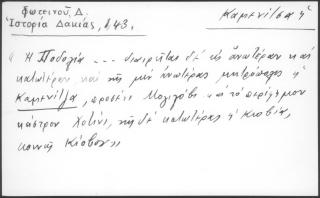 Φωτεινοῦ, Δ.
Ἱστορία Δακίας, 143.
Καμενίτσα ἡ
"Ἡ Ποδολία --- διαιρεῖται δὲ εἰς ἀνωτέραν καὶ
κατωτέραν καὶ τῆς μὲν ἀνωτέρας μητρόπολις ἡ
Καμενίτζα, προσέτι καὶ τὸ περίφημον
κάστρον Χοτίνι, τῆς δὲ κατωτέρας ἡ
κοινῶς